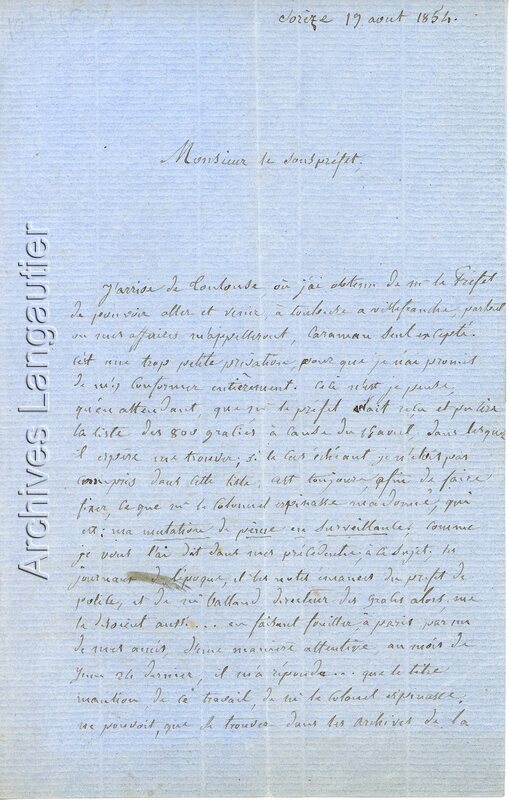 Sorèze 19 aout 1854.
Monsieur le souspréfet,
J'arrive de Toulouse où j'ai obtenu de mr le Préfet
de pouvoir aller et venir, à toulouse a villefranche, partout
ou mes affaires m'appelleront, Caraman seul excepté.
C'est une trop petite privation, pour que je n'aie promis
de m'y conformer entièrement. Cela n'est, je pense,
qu'en attendant, que mr le préfet ait reçu et publié
la liste des 800 graciés à cause du 15 aout, dans laquelle
il espère me trouver; si le cas échéant je n'étais pas
compris dans cette liste, est toujours, afin de faire
fixer, ce que mr le Colonnel espinasse m'a donné, qui
est; ma mutation de peine en surveillance, comme
je vous l'ai dit dans mes précédentes, à ce sujet. les
journaux de l'époque, et les notes émanées du préfet de
police, et de mr directeur des graces alors, me
le disoient aussi.... en faisant fouiller, à paris, par un
de mes amis d'une manière attentive au mois de
juin 24 dernier, il m'a répondu... que le titre
mention, de ce travail, de mr le Colonel espinasse,
ne pouvoit, que se trouver dans les archives de la
Archives Langautier